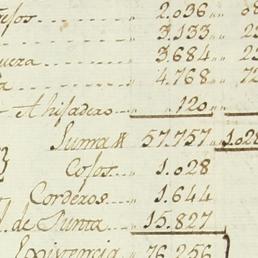 esos 2.036 08
3.133 2
uera 3.684 23
a 4.768 72
Ahijadero 120
Suma 57.757 1.028
Cojos 1.028
Corderos 1.644
de Punta 15.827
Existencia 76.256